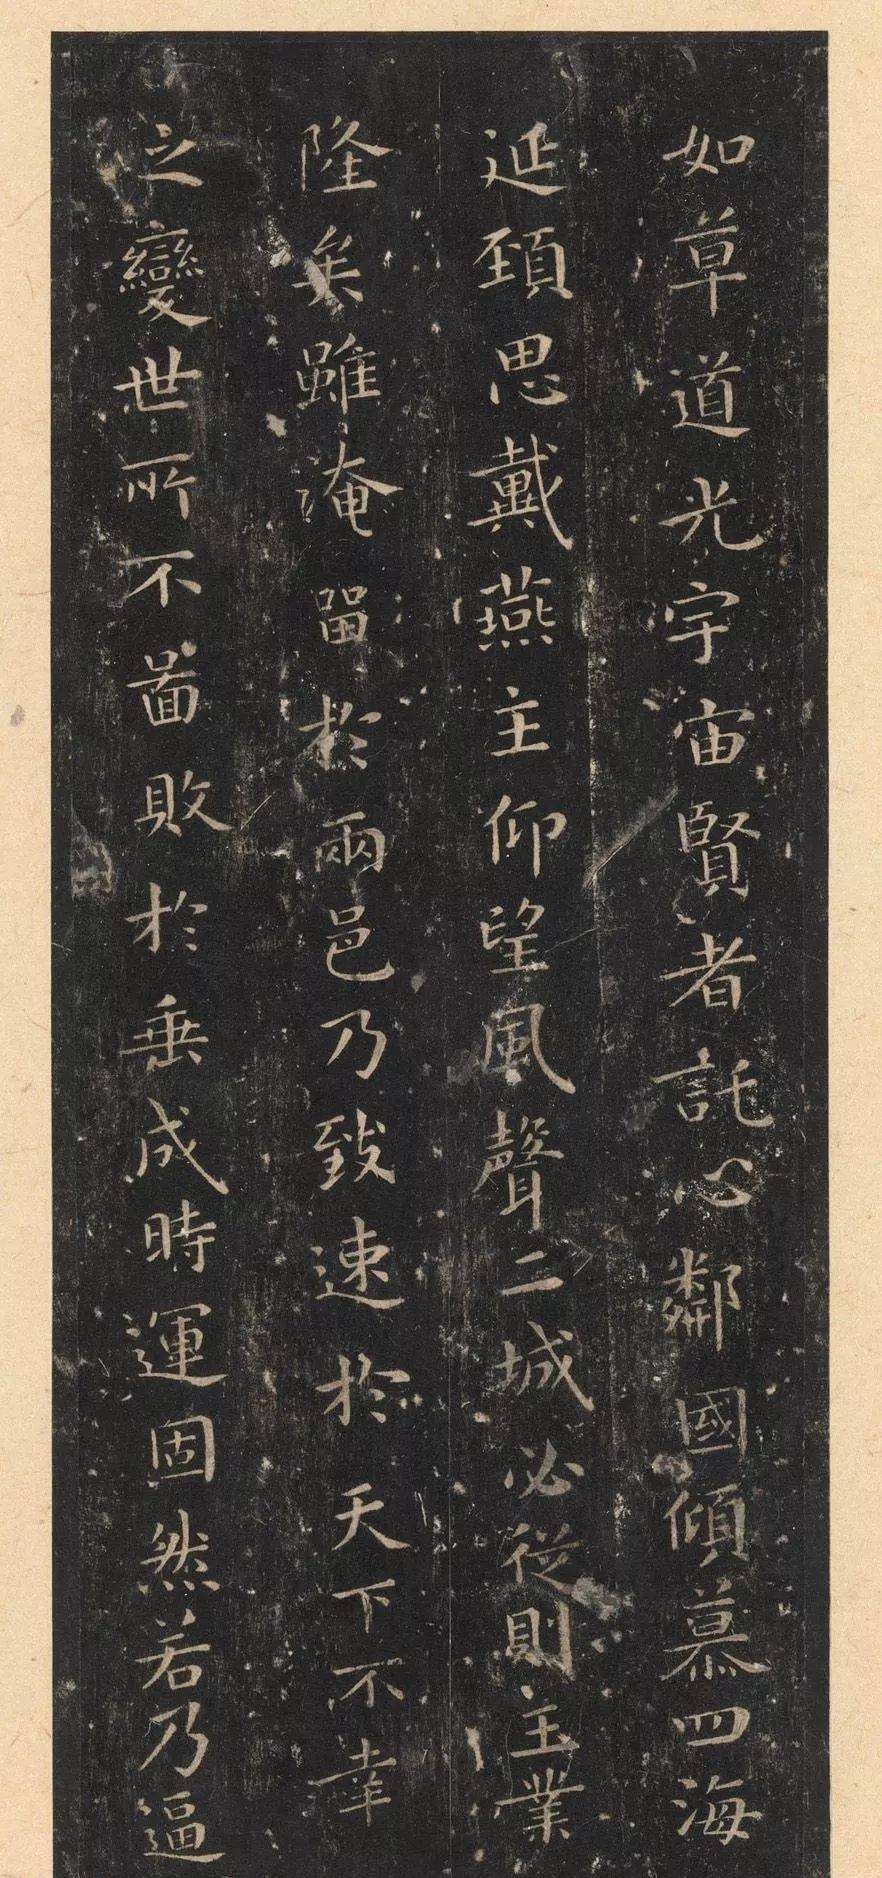 如草道光宇宙賢者託心鄰國傾慕四海
延頚思戴燕主仰望風聲二城必從則王業
隆矣雖淹留於兩邑乃致速於天下不幸
之變世所不啚敗於垂成時運固然若乃逼